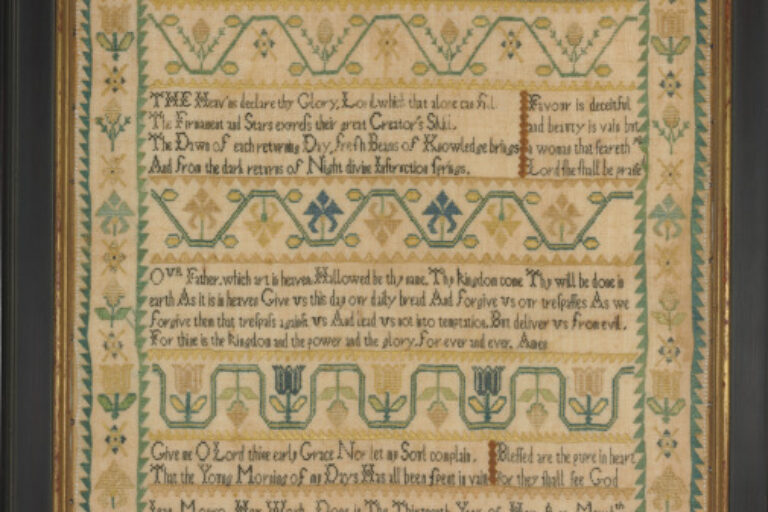 THE Heav'ns declare thy Glory, Lord, which that alone can fill.
The Firmament and Stars express their great Creator's Skill.
The Dawn of each returning Day, fresh Beams of Knowledge brings
And from the dark returns of Night divine Instruction springs.
Favour is deceitful
and beauty is vain but
a woman that feareth the
Lord she shall be praise
OVR Father, which art in heaven, Hallowed be thy name. Thy kingdon come Thy will be done in
earth As it is in heaven Give vs this day our daily bread And forgive vs our trespasses As we
forgive them that trespass against vs And lead vs not into temptation. But deliver vs from evil.
For thine is the kingdon and the power and the glory, for ever and ever, Amen
Give me O Lord thine early Grace Nor let my Sonl complain.
That the Young Morning of my Days Has all been spent in vain
Blessed are the pure in heart
for they shall see God
Her Work Done in The Thirteenth Year of Her Age